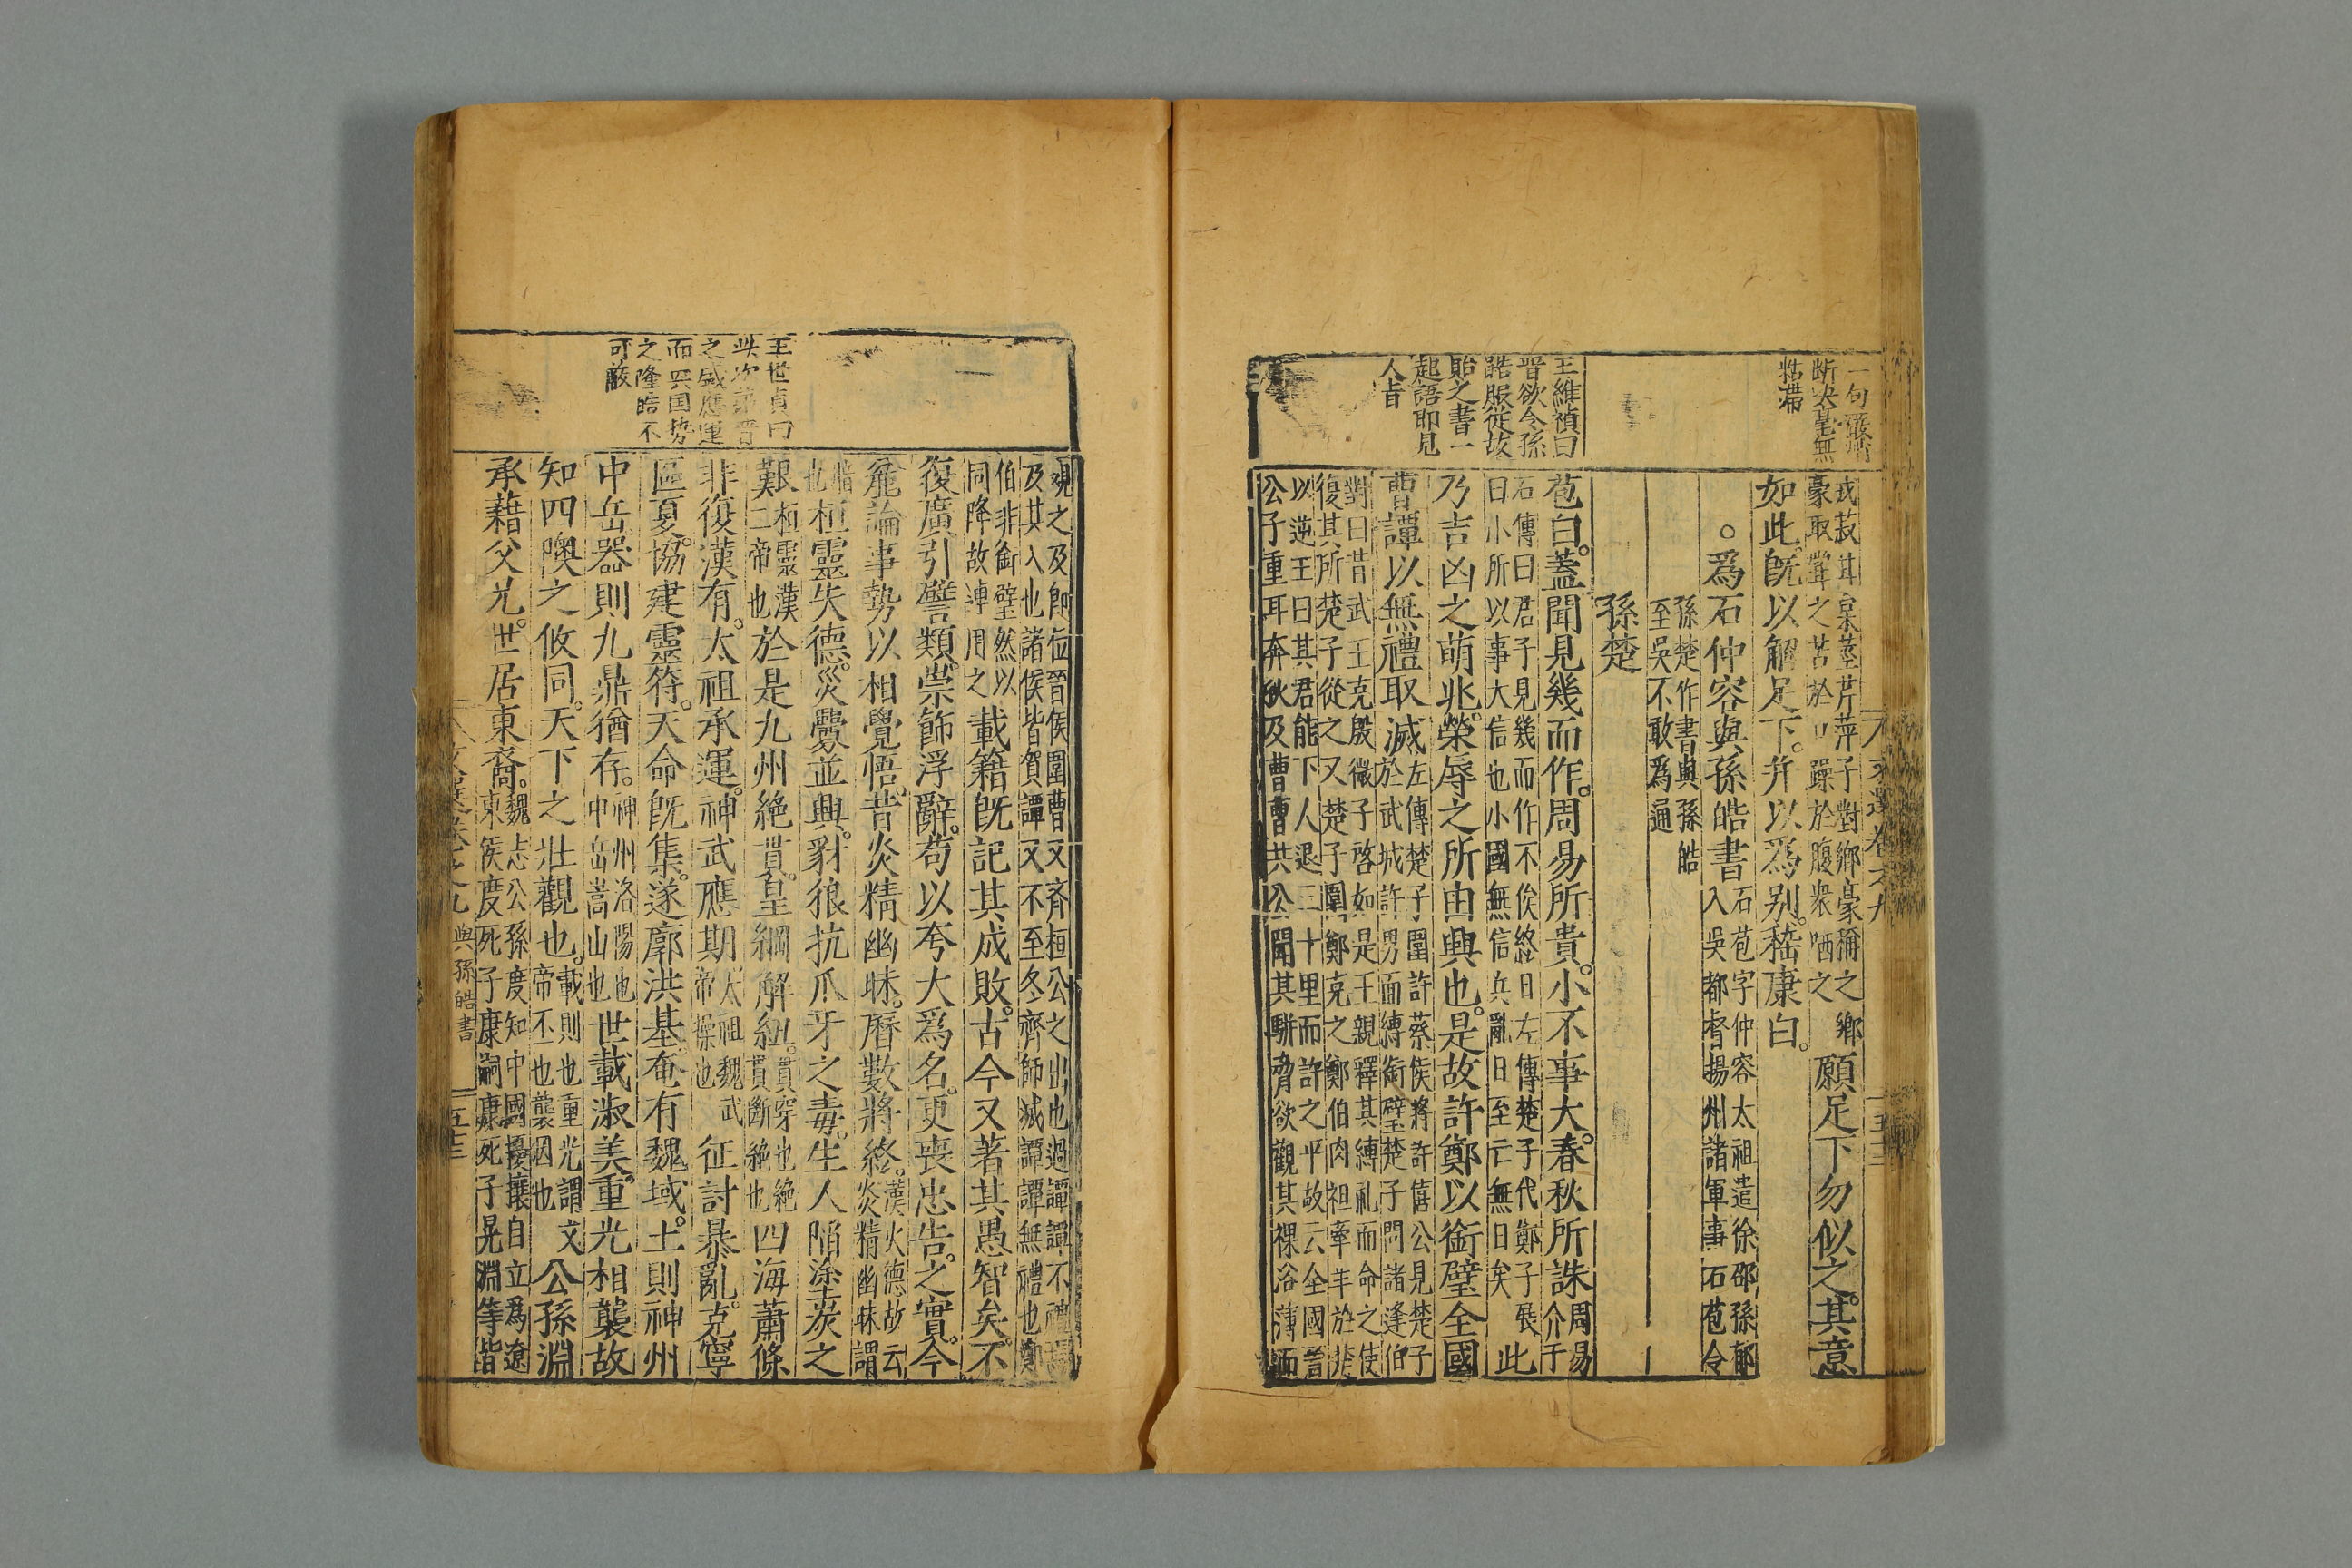 一句
断決毫無
粘滯
戎菽甘枲莖芹萍子對鄉豪稱之鄉
豪取嘗之苦於口躁於腹衆哂之
願足下勿似之其意
如此既以解足下并以爲別嵇康白
爲石仲容與孫皓書
石苞字仲容太祖遣徐邵孫郁
入吳都督揚州諸軍事石苞令
孫楚作書與孫皓
至吳不敢爲通
孫楚
王維禎曰
晉欲令孫
皓服從故
貽之書一
起語即見
人旨
苞白蓋聞見幾而作周易所貴小不事大春秋所誅
周易
介于
石傳曰君子見幾而作不俟終日左傳楚子代鄭子展
日小所以事大信也小國無信兵亂日至亡無日矣
此
乃吉凶之萌兆榮辱之所由興也是故許鄭以銜璧全國
曹譚以無禮取滅
左傳楚子圍許蔡侯將許僖公見楚子
於武城許男面縛銜璧楚子問諸逢伯
對曰昔武王克殷微子啓如是王親釋其縛礼而命之使
復其所楚子從之又楚子圍鄭克之鄭伯肉袒牽羊於
以逆王曰其君能下人退三十里而許之平故云全國晉
公子重耳奔狄及曹曹共公聞其駢脅欲觀其裸浴薄而
觀之及即位晉侯圍曹又齊桓公之出也過譚譚不禮焉
及其入也諸侯皆賀譚又不至冬齊師滅譚譚無禮也鄭
伯非銜璧然以
同降故連用之
載籍既記其成敗古今又著其愚智矣不
復廣引譬類崇飾浮辭苟以夸大爲名更喪忠告之實今
粗論事勢以相覺悟昔炎精幽昧曆數將終
漢火德故云
炎精幽昧謂
暗
也
桓靈失德災釁並興豺狼抗爪牙之毒生人陷塗炭之
艱
桓靈漢
二帝也
於是九州絕貫皇綱解紐
貫穿也絕
貫斷絕也
四海蕭條
非復漢有太祖承運神武應期
太祖魏武
帝操也
征討暴亂克寧
區夏協建靈符天命既集遂廓洪基奄有魏域土則神州
中岳器則九鼎猶存
神州洛陽也
中岳嵩山也
世載淑美重光相襲故
知四隩之攸同天下之壯觀也
載則也重光謂文
帝丕也襲因也
公孫淵
承藉父兄世居東裔
魏志公孫度知中國擾攘自立爲遼
東侯度死子康嗣康死子晃淵等皆
王世貞曰
此次第晉
之盛應運
而興国勢
之隆皓不
可敵
與孫皓書